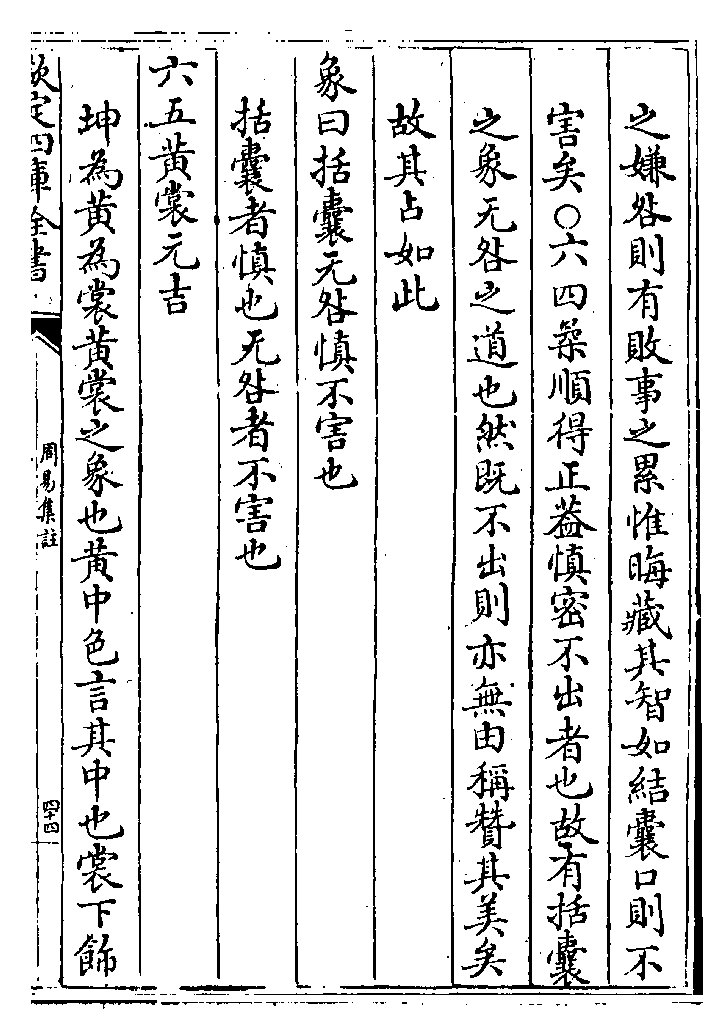 之嫌咎則有敗事之累惟晦藏其智如結囊口則不
害矣〇六四柔順得正葢慎密不出者也故有括囊
之象无咎之道也然既不出則亦無由稱贊其美矣
故其占如此
象曰括囊无咎慎不害也
括囊者慎也无咎者不害也
六五黄裳元吉
坤為黄為裳黄裳之象也黄中色言其中也裳下飾
欽定四庫全書
周易集註
四十四